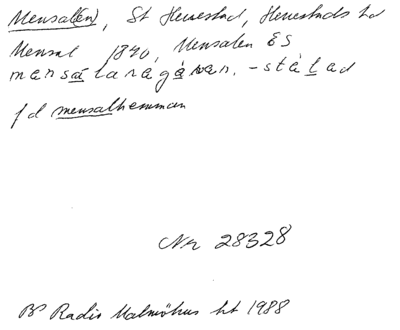 Mensal(en), St Herrestad, Herrestads hd
Mensal 1840, Mensalen ES
mensálanagá̱ran. -stálad
f d mensalhemman
Nr 28328
Bs Radio Malmöhus ht 1988